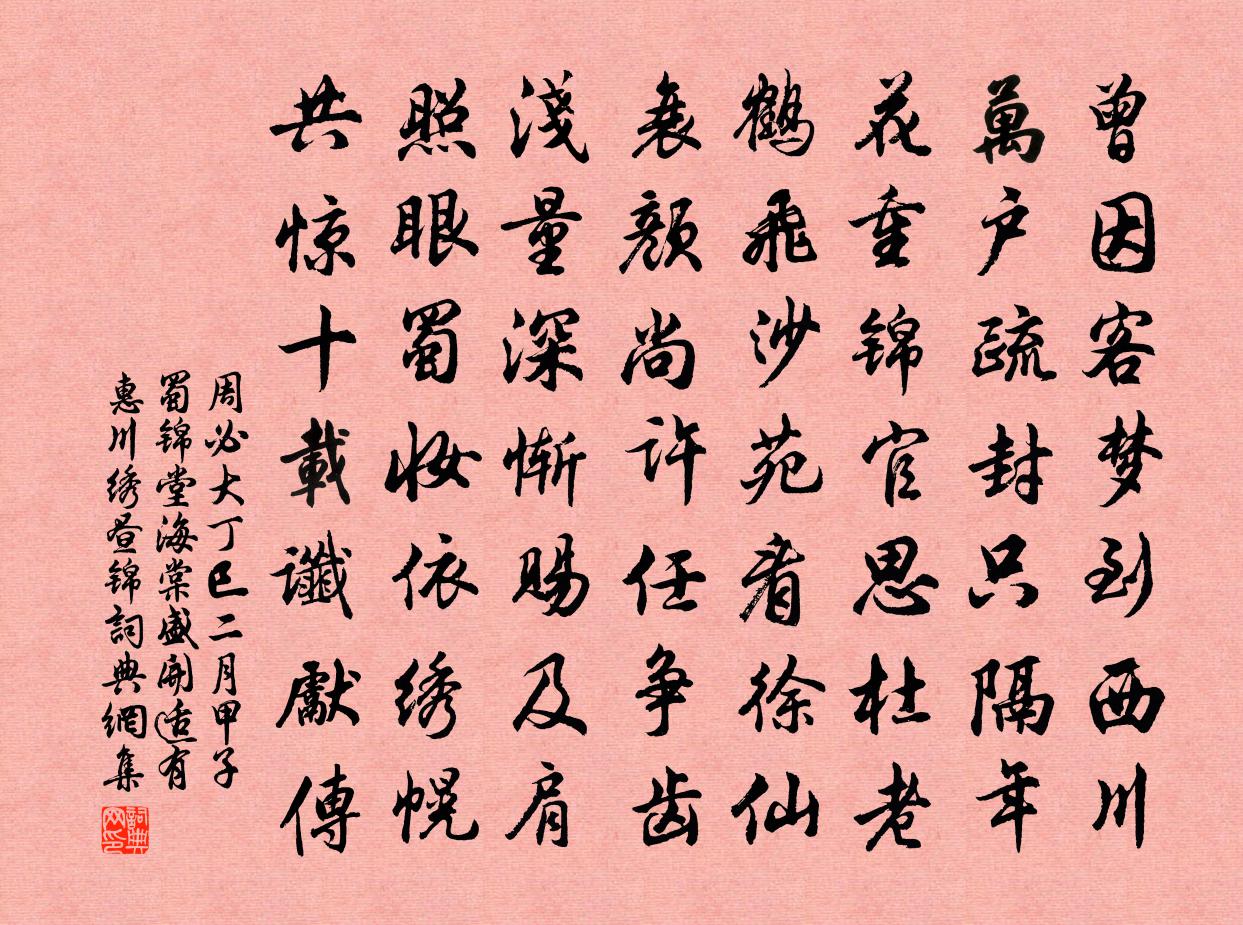 曾因客梦到西川
萬户疏封只隔年
花重锦官思杜老
鹤飛沙苑看徐仙
衰颜尚许任争齿
淺量深惭赐及肩
照眼蜀妆依绣幌
共惊十載讖獻傳
周必大丁巳二月甲子
蜀锦堂海棠盛開适有
惠川绣昼锦詞典網集
詞典网印